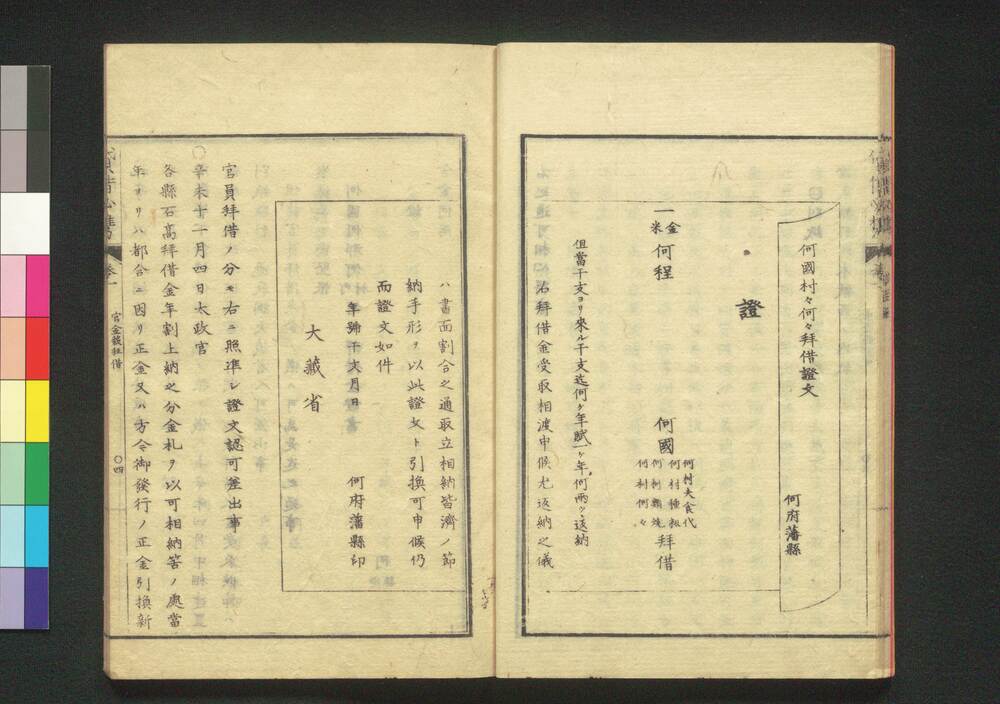 何國村々何々拜借證文
何府藩縣
證
一金米何程
何國
何村夫食代
何村種籾
何村類焼
何村何々
拜借
但當干支ヨリ來ル干支迄何ケ年賦一ケ年何兩ツヽ返納
右拜借金受取相渡申候尤返納之儀
ハ書面割合之通取立相納皆濟ノ節
納手形ヲ以此證文ト引換可申候仍
而證文如件
年號干支月日
何府藩縣印
大藏省
官員拜借ノ分モ右ニ照準シ證文認可差出事
〇辛未十一月四日太政官
各縣石高拜借金年割上納之分金札ヲ以可相納筈ノ處當
年ヨリハ都合ニ因リ正金又ハ方今御發行ノ正金引換新
卷一
官金穀拜借
〇四